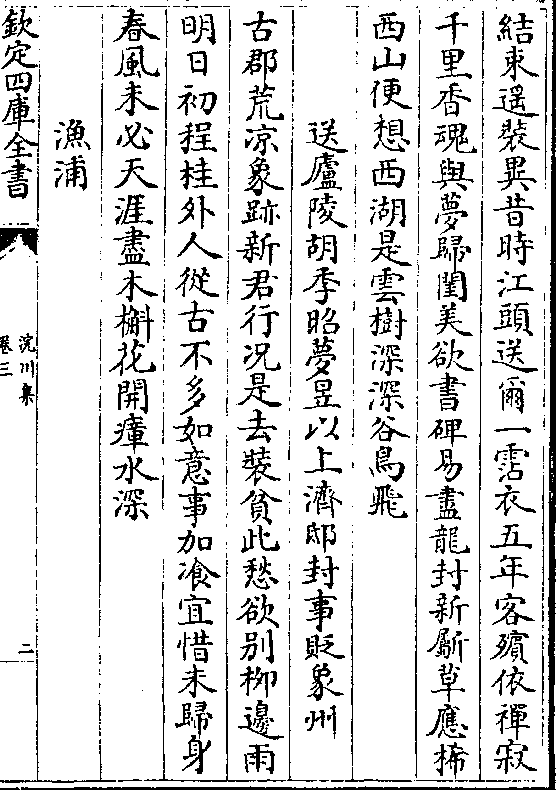 結束遥裝異昔時江頭送爾一霑衣五年客殯依禪寂
千里香魂與夢歸閨美欲書碑易盡龍封新斸草應稀
西山便想西湖是雲樹深深谷鳥飛
送廬陵胡季昭夢昱以上濟邸封事貶象州
古郡荒凉象跡新君行况是去裝貧此愁欲别栁邊雨
明日初程桂外人從古不多如意事加飡宜惜未歸身
春風未必天涯盡木槲花開瘴水深
漁浦
欽定四庫全書
滄川集
卷三
二